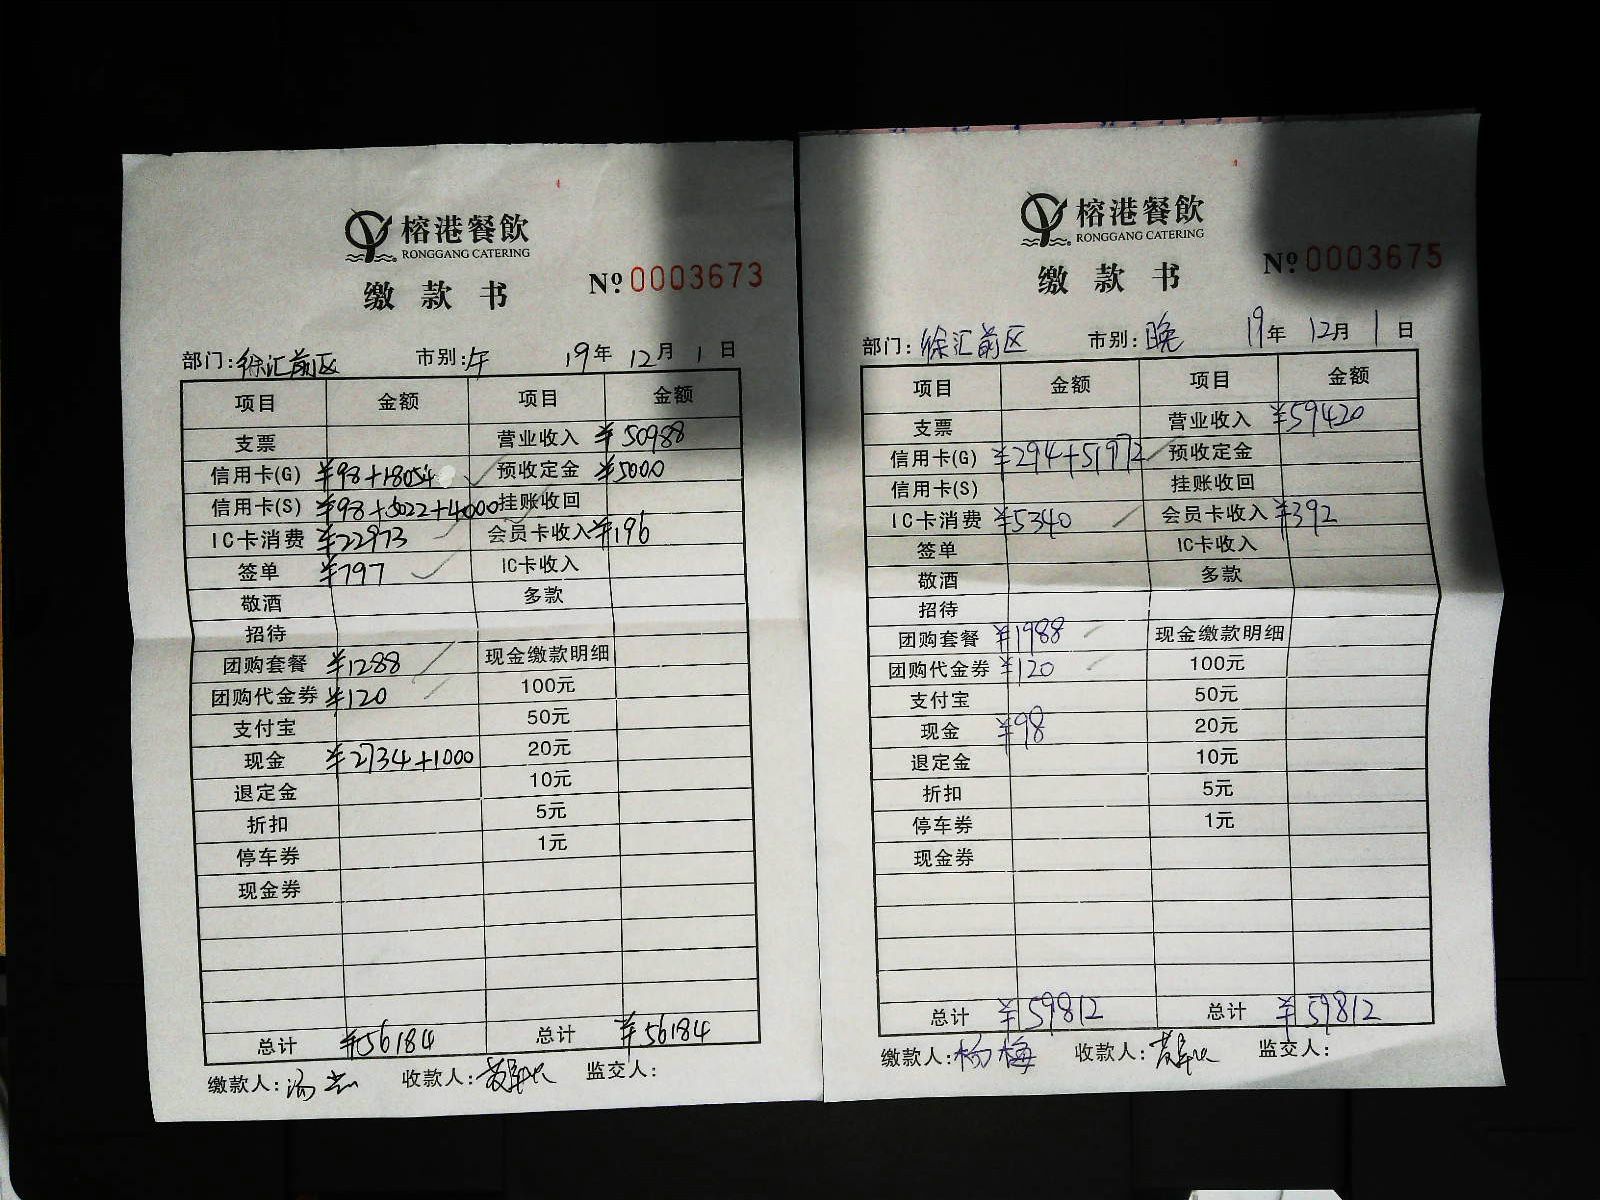 榕港餐飲
RONGGANG CATERING
缴款书
Nº 0003673
部门:徐汇前区 市别:午 19年 12月 1日
项目 金额 项目 金额
支票 营业收入 ¥50988
信用卡(G) ¥98+18054 预收定金 ¥5000
信用卡(S) ¥98+5022+4000 挂账收回
IC卡消费 ¥22973 会员卡收入 ¥196
签单 ¥797 IC卡收入
敬酒 多款
招待
团购套餐 ¥1288 现金缴款明细
团购代金券 ¥120 100元
支付宝 50元
现金 ¥2734+1000 20元
退定金 10元
折扣 5元
停车券 1元
现金券
总计 ¥56184 总计 ¥56184
缴款人: 收款人: 监交人:
榕港餐飲
RONGGANG CATERING
缴款书
Nº 0003675
部门:徐汇前区 市别:晚 19年 12月 1日
项目 金额 项目 金额
支票 营业收入 ¥59420
信用卡(G) ¥294+51972 预收定金
信用卡(S) 挂账收回
IC卡消费 ¥5340 会员卡收入 ¥392
签单 IC卡收入
敬酒 多款
招待
团购套餐 ¥1988 现金缴款明细
团购代金券 ¥120 100元
支付宝 50元
现金 ¥98 20元
退定金 10元
折扣 5元
停车券 1元
现金券
总计 ¥59812 总计 ¥59812
缴款人:杨梅 收款人: 监交人: